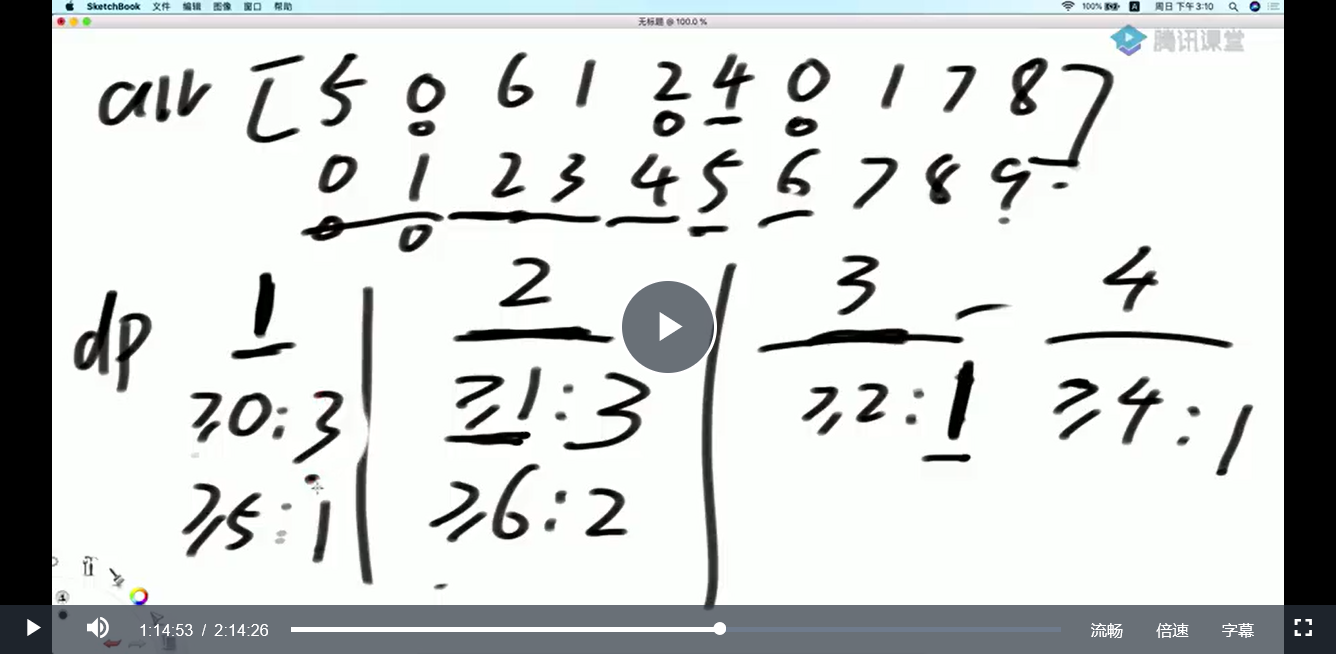 SketchBook 文件 编辑 图像 窗口 帮助 100% A 周日 下午3:10
无标题 @ 100.0 %
腾讯课堂
arr [5 0 6 1 2 4 0 1 7 8]
0 0 0
0 1 2 3 4 5 6 7 8 9
0 0
dp 1 2 3 4
≥0:3 ≥1:3 ≥2:1 ≥4:1
≥5:1 ≥6:2
1:14:53 / 2:14:26 流畅 倍速 字幕